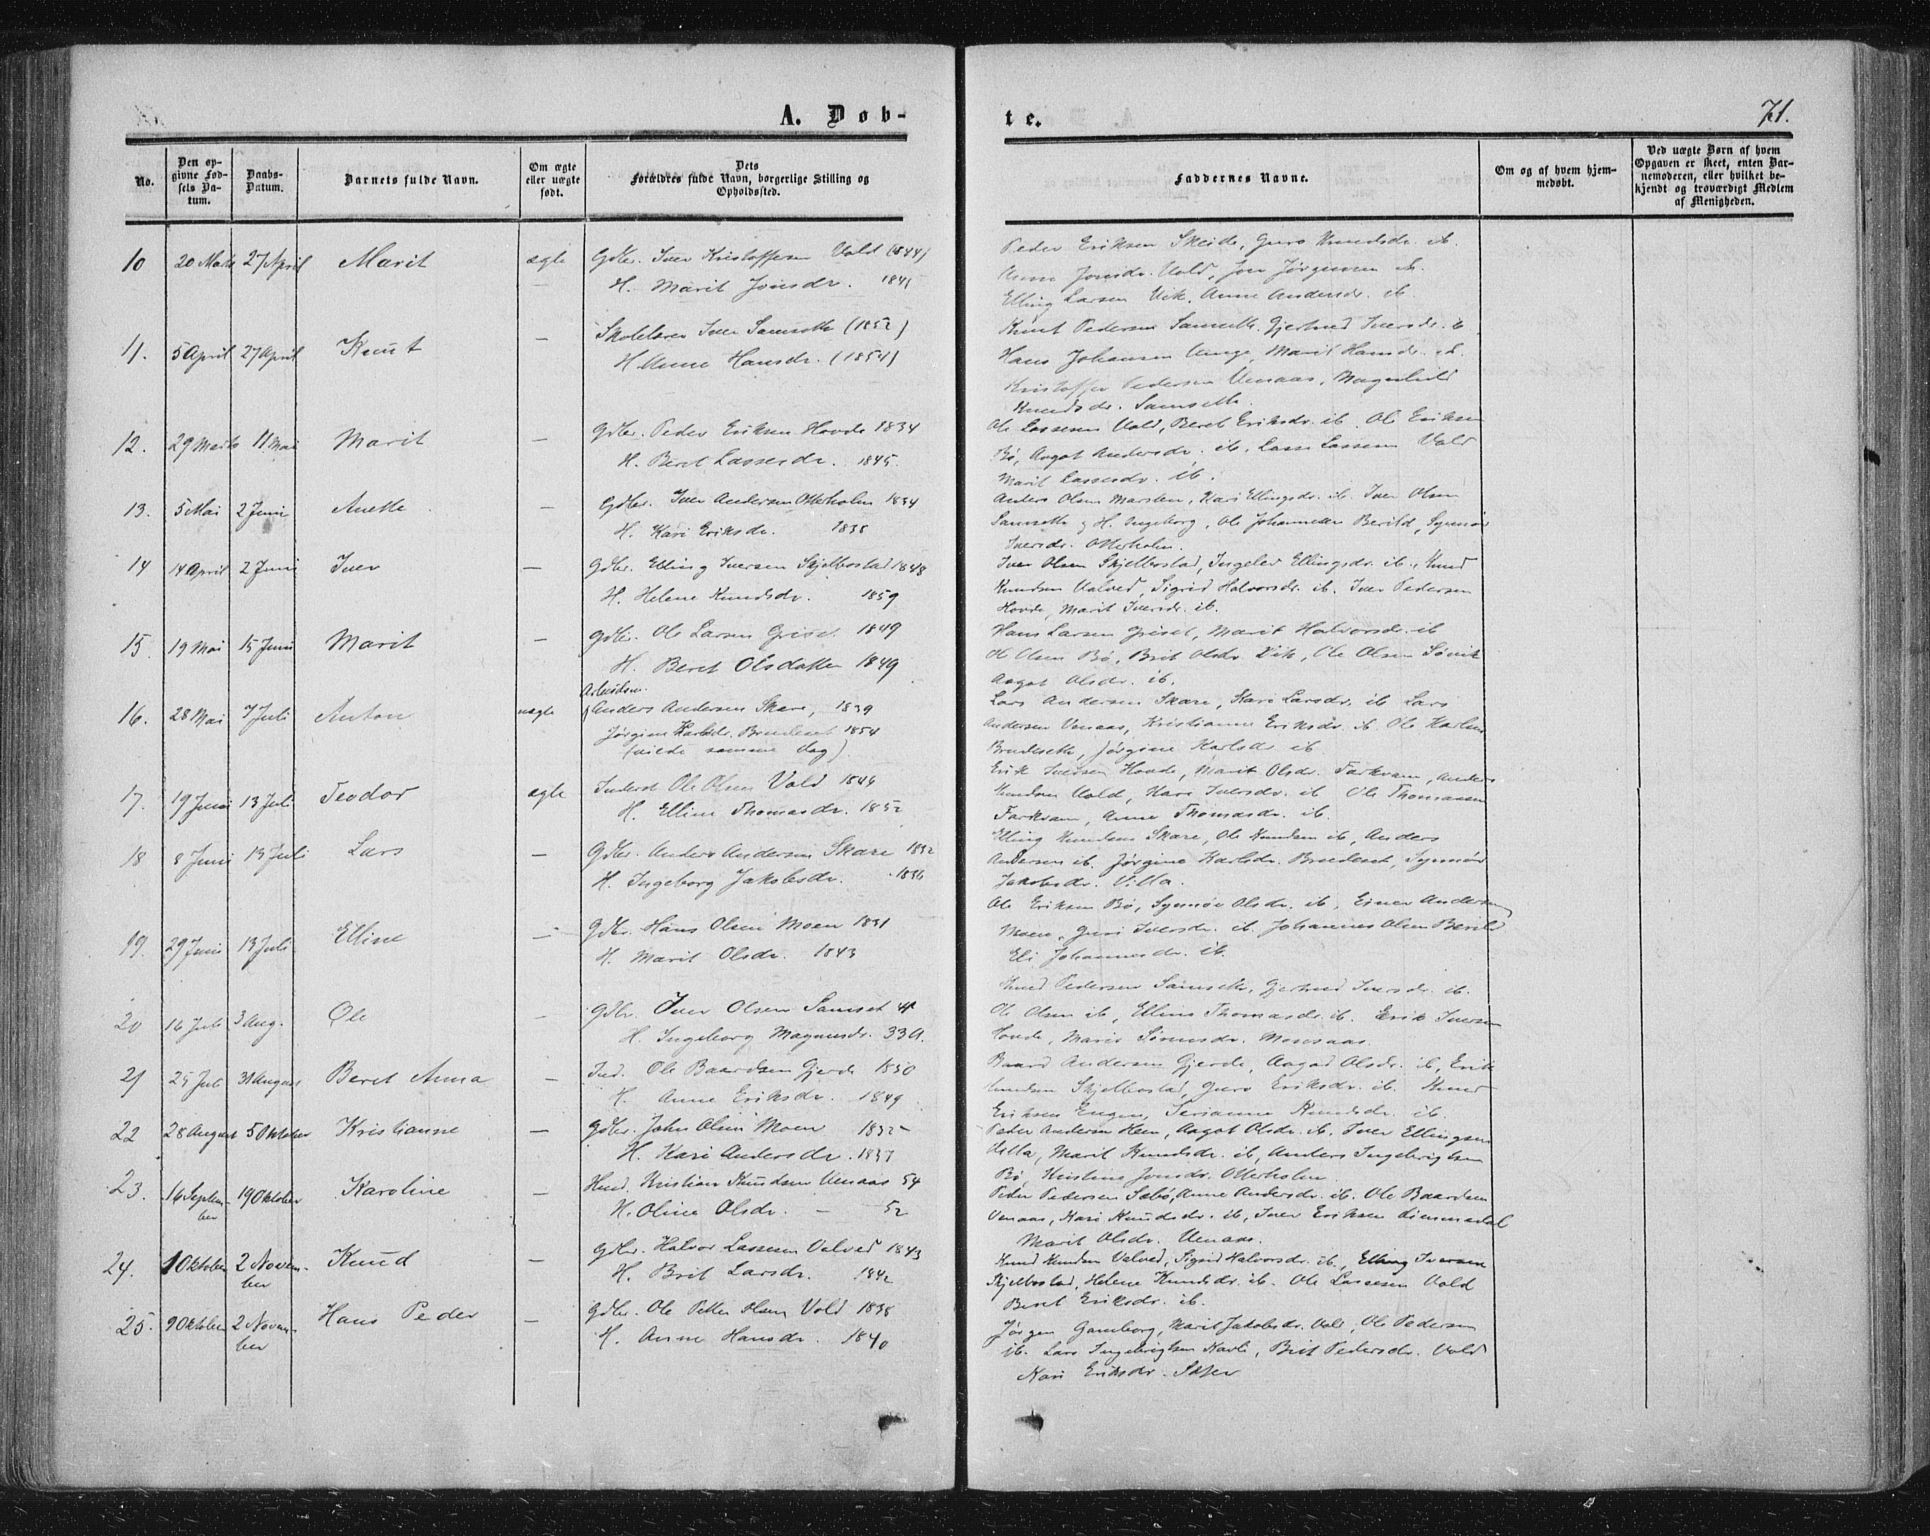 A. Døb-
te.
71.
No.
Den op-
givne Fød-
sels Da-
tum.
Daabs-
Datum.
Barnets fulde Navn.
Om ægte
eller uægte
født.
Dets
Forældres fulde Navn, borgerlige Stilling og
Opholdssted.
Faddernes Navne.
Om og af hvem hjem-
medøbt.
Ved uægte Børn af hvem
Opgaven er skeet, enten Bar-
nemoderen, eller hvilket be-
kjendt og troværdigt Medlem
af Menigheden.
10 20 Mats 27 April Marit ægte Gdbr. Iver Kristoffersen Vold (1844)
— H. Marit Jonsdr. 1845
Peder Eriksen Skeide, Guro Knudsdr. ib.
Anne Jonsdr. Vold, Jon Jørgensen ib.
Elling Larsen Vik, Anne Andersdr. ib.
11. 5 April 27 April Knut — Skolelærer Iver Samseth (1852)
H. Anne Hansdr. (1854)
Knut Pedersen Samseth, Gjertrud Iversdr. ib
Hans Johansen Unge, Marit Hansdr. ib.
Kristoffer Pedersen Venaas, Magnhild
Knudsdr. Samseth.
12. 29 Marts 11 Mai Marit — Gdbr. Peder Eriksen Hovde 1834
H. Beret Lassesdr. 1845.
Ole Lassesen Vold, Beret Eriksdr. ib. Ole Eriksen
Bø, Aagot Andersdr. ib. Lasse Lassesen Vold
Marit Lassesdr. ib.
13. 5 Mai 2 Juni Anette — Gdbr. Iver Andersen Otterholm 1834
H. Kari Eriksdr. 1838
Anders Olsen Marsten, Kari Ellingsdr. ib. Iver Olsen
Samseth & H. Ingeborg, Ole Johannesen Berild, Synnøv
Iversdr. Otterholm.
14 14 April 2 Juni Iver — Gdbr. Elling Iversen Skjelbostad 1848
H. Helene Knudsdr. 1859
Iver Olsen Skjelbostad, Ingelev Ellingsdr. ib., Knud
Knudsen Valved, Sigrid Halvorsdr. ib. Iver Pedersen
Hovde, Marit Iversdr. ib.
15. 19 Mai 15 Juni Marit — Gdbr. Ole Larsen Griset 1849
H. Beret Olsdatter 1849
Hans Larsen Griset, Marit Halvorsdr. ib
Ole Olsen Bø, Brit Olsdr. Vik, Ole Olsen Søvik
Aagot Olsdr. ib.
16. 28 Mai 7 Juli Anton uægte Arbeidsm.
Anders Andersen Skare, 1839
Jørgine Karlsdr. Brudeset 1854
(viede samme dag).
Lars Andersen Skare, Kari Larsdr. ib Lars
Andersen Venaas, Kristianne Eriksdr. ib Ole Karlsen
Brudeseth, Jørgine Karlsdr. ib.
17. 19 Juni 13 Juli Teodor ægte Inderst Ole Olsen Vold 1846
H. Elline Thomasdr. 1852
Erik Iversen Hovde, Marit Olsdr. Tarkvam, Anders
Knudsen Vold, Kari Iversdr. ib Ole Thomassen
Tarkvam, Anne Thomasdr. ib.
18 8 Juni 13 Juli Lars — Gdbr. Anders Andersen Skare 1832
H. Ingeborg Jakobsdr. 1836
Elling Knudsen Skare, Ole Knudsen ib, Anders
Andersen ib. Jørgine Karlsdr. Brudeset, Synnøv
Jakobsdr. Villa.
19. 29 Juni 13 Juli Elline — Gdbr. Hans Olsen Moen 1831
H. Marit Olsdr. 1843
Ole Eriksen Bø, Synnøv Olsdr. ib, Einer Andersen
Moen, Guri Iversdr. ib. Johannes Olsen Berild
Eli Johannesdr. ib.
20 16 Juli 3 Aug. Ole — Gdbr. Iver Olsen Samset 41
H. Ingeborg Magnusdr. 33 A.
Knud Pedersen Samseth, Gjertrud Iversdr. ib.
Ole Olsen ib, Elline Thomasdr. ib. Erik Iversen
Hovde, Marie Sørensdr.
21 25 Juli 31 August Beret Anna — Ind. Ole Baardsen Gjerde 1850
H. Anne Eriksdr. 1849
Baard Andersen Gjerde, Aagot Olsdr. ib, Erik
Knudsen Skjelbostad, Guro Eriksdr. ib Knud
Eriksen Engen, Serianne Knudsdr. ib.
22 28 August 5 Oktober Kristianne — Gdbr. John Olsen Moen 1832
H. Kari Andersdr. 1837
Peder Andersen Heen, Aagot Olsdr. ib. Iver Ellingsen
Villa, Marit Knudsdr. ib, Anders Ingebrigtsen
Bø, Kristine Jonsdr. Otterholm.
23. 16 Septem-
ber 19 Oktober Karoline — Husm. Kristian Knudsen Venaas 54
H. Oline Olsdr. — 52
Peder Pedersen Sæbø, Anne Andersdr. ib. Ole Baardsen
Venaas, Kari Knudsdr. ib, Iver Eriksen
Marit Olsdr. Venaas.
24. 1 Oktober 2 Novem-
ber Knud — Gdbr. Halvor Lassesen Valved 1843
H. Brit Larsdr. 1842
Knud Knudsen Valved, Sigrid Halvorsdr. ib., Elling Iversen
Skjelbostad, Helene Knudsdr. ib. Ole Lassesen Vold
Beret Eriksdr. ib.
25. 9 Oktober 2 Novem-
ber Hans Peder — Gdbr. Ole Petter Olsen Vold 1838
H. Anne Hansdr. 1840
Jørgen Gamborg, Marit Jakobsdr. Vold, Ole Pedersen
ib. Lars Ingebrigtsen Kavli, Brit Pedersdr. Vold
Kari Eriksdr.